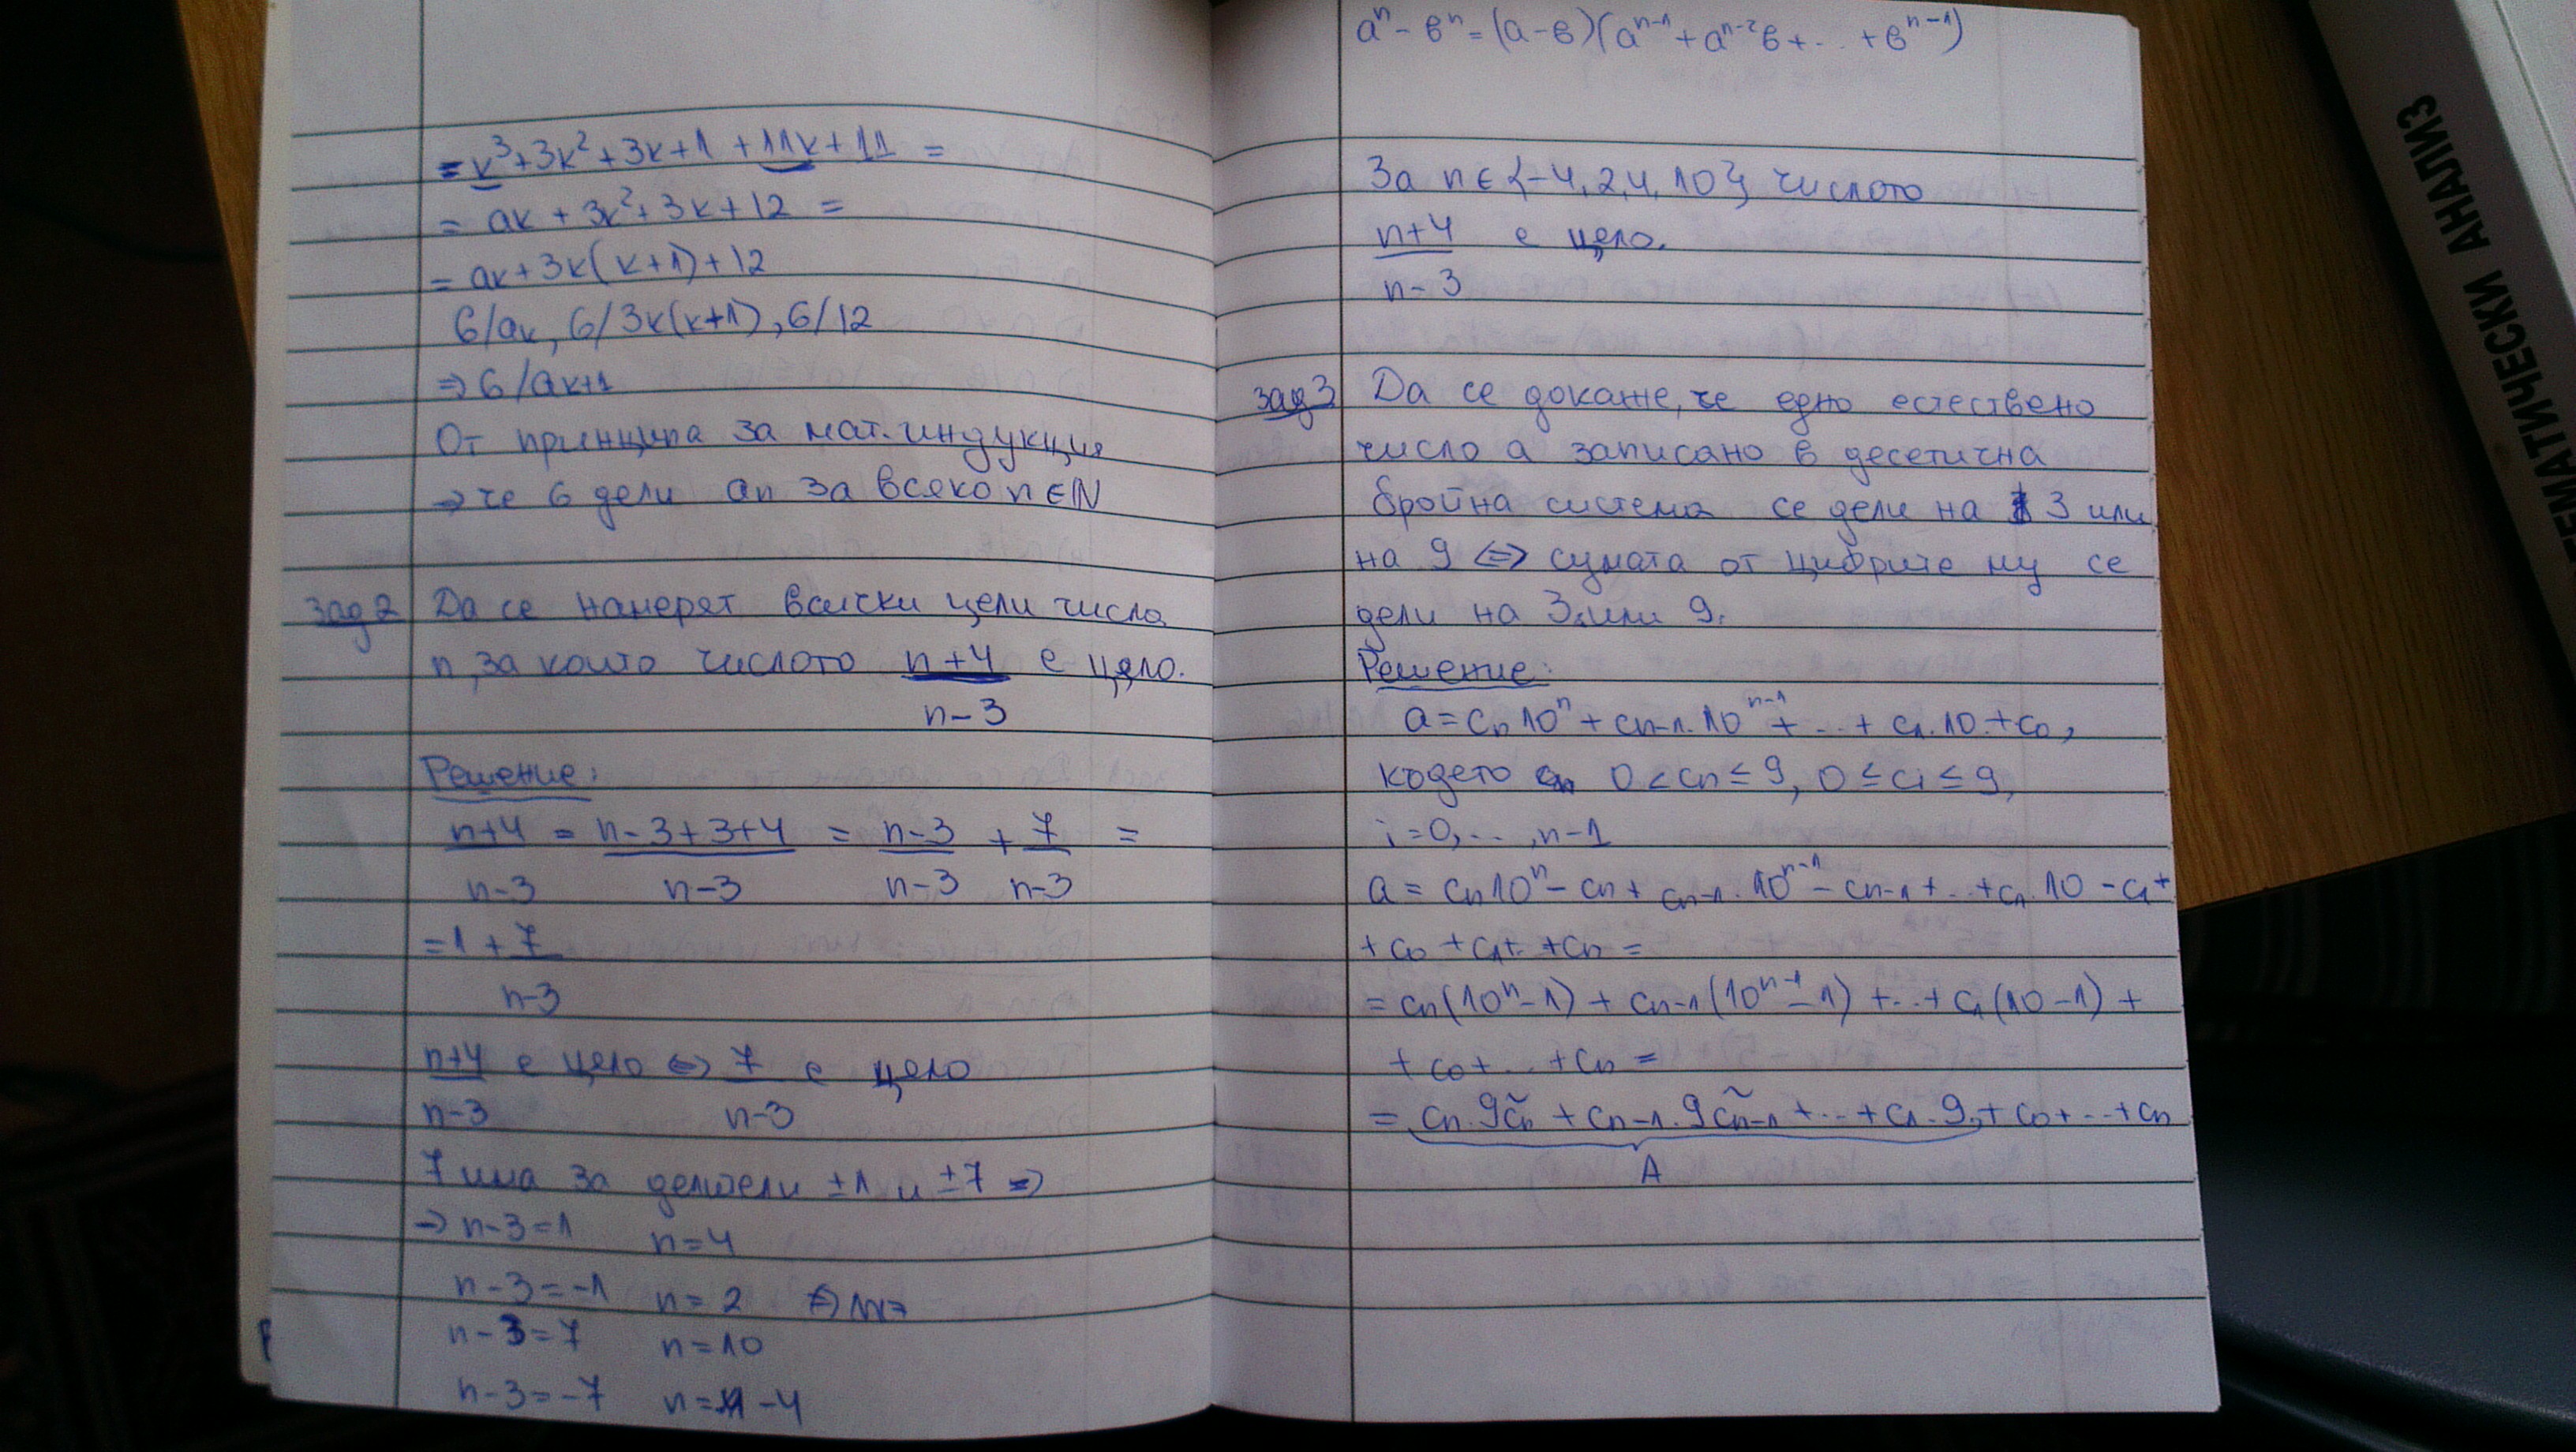 = k³+3k²+3k+1+11k+11 =
= ak + 3k²+3k+12 =
= ak+3k(k+1)+12
6/ak, 6/3k(k+1), 6/12
⇒ 6/ak+1
От принципа за мат. индукция
→ че 6 дели an за всяко n∈N
зад 2 Да се намерят всички цели числа
n, за които числото n+4 е цяло.
n-3
Решение:
n+4 = n-3+3+4 = n-3 + 7 =
n-3 n-3 n-3 n-3
= 1 + 7
n-3
n+4 е цяло ⇔ 7 е цяло
n-3 n-3
7 има за делители ±1 и ±7 ⇒
→ n-3=1 n=4
n-3=-1 n=2
n-3=7 n=10
n-3=-7 n=-4
aⁿ-вⁿ=(а-в)(aⁿ⁻¹+aⁿ⁻²в+...+вⁿ⁻¹)
За n∈{-4,2,4,10} числото
n+4 е цяло.
n-3
зад 3 Да се докаже, че едно естествено
число а записано в десетична
бройна система се дели на 3 или
на 9 ⇔ сумата от цифрите му се
дели на 3 или 9.
Решение:
a = cn 10ⁿ + cn-1.10ⁿ⁻¹ + ... + c1.10 + c0,
където 0 < cn ≤ 9, 0 ≤ ci ≤ 9,
i=0,...,n-1
a = cn10ⁿ - cn + cn-1.10ⁿ⁻¹ - cn-1 + ... + c1.10 - c1 +
+ c0 + c1+ +cn =
= cn(10ⁿ-1) + cn-1(10ⁿ⁻¹-1) + ... + c1(10-1) +
+ c0 + ... + cn =
= cn.9c̃n + cn-1.9c̃n-1 + ... + c1.9 + c0 + ... + cn
A
МАТЕМАТИЧЕСКИ АНАЛИЗ